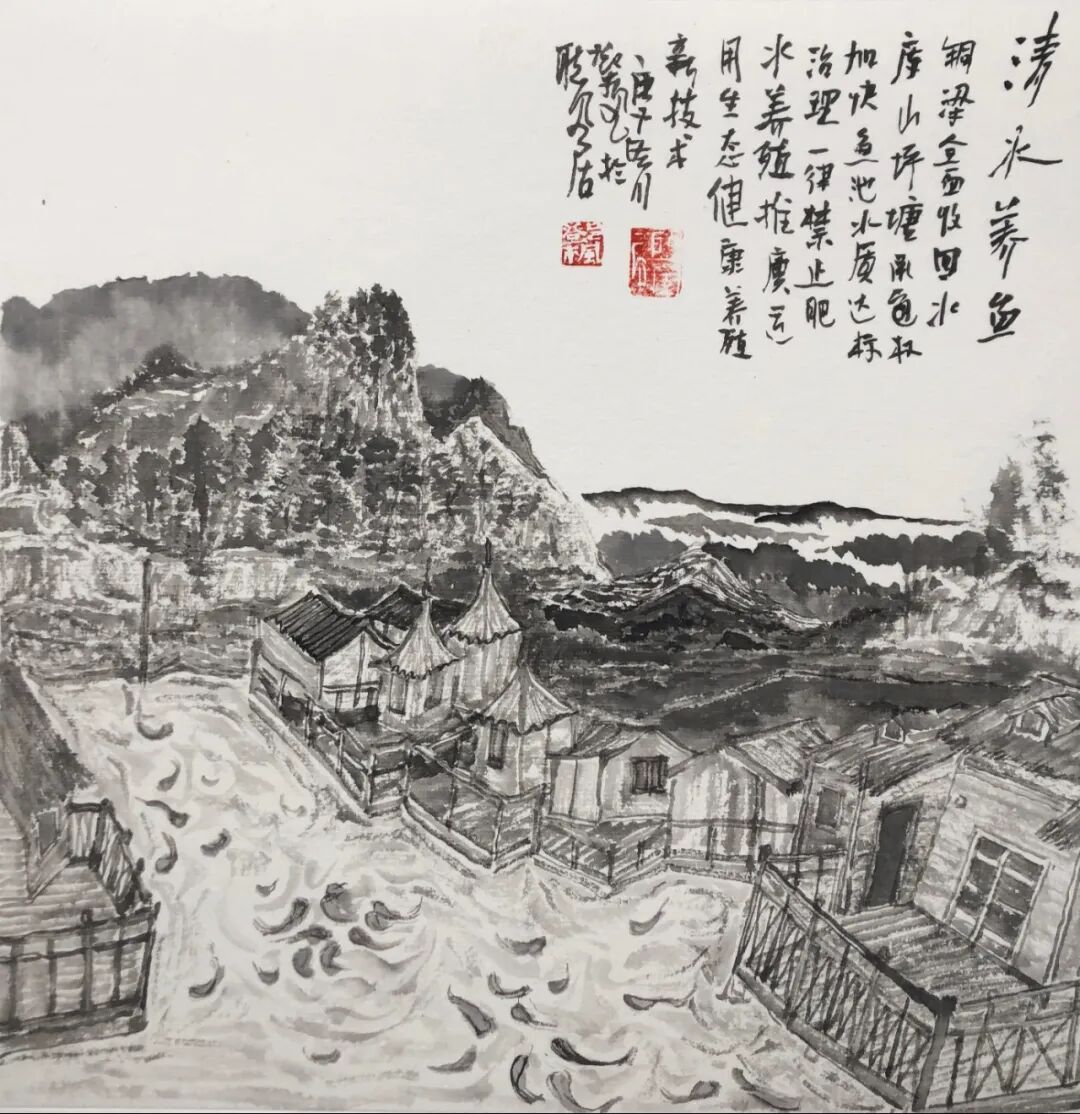 清水养鱼
铜梁全面收回水
库山坪塘承包权
加快鱼池水质达标
治理一律禁止肥
水养殖推广运
用生态健康养殖
新技术
庚子
于
听风居